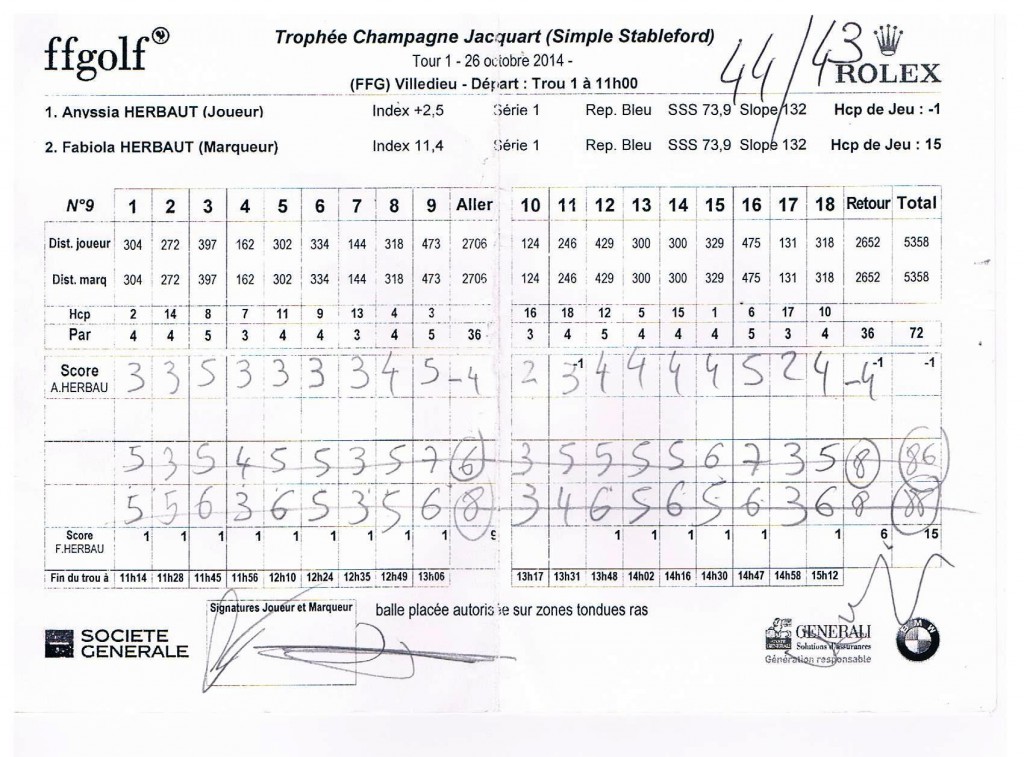 ffgolf
Trophée Champagne Jacquart (Simple Stableford)
Tour 1 - 26 octobre 2014 -
(FFG) Villedieu - Départ : Trou 1 à 11h00
44/43
ROLEX
1. Anyssia HERBAUT (Joueur) Index +2,5 Série 1 Rep. Bleu SSS 73,9 Slope 132 Hcp de Jeu : -1
2. Fabiola HERBAUT (Marqueur) Index 11,4 Série 1 Rep. Bleu SSS 73,9 Slope 132 Hcp de Jeu : 15
N°9 1 2 3 4 5 6 7 8 9 Aller 10 11 12 13 14 15 16 17 18 Retour Total
Dist. joueur 304 272 397 162 302 334 144 318 473 2706 124 246 429 300 300 329 475 131 318 2652 5358
Dist. marq 304 272 397 162 302 334 144 318 473 2706 124 246 429 300 300 329 475 131 318 2652 5358
Hcp 2 14 8 7 11 9 13 4 3 16 18 12 5 15 1 6 17 10
Par 4 4 5 3 4 4 3 4 5 36 3 4 5 4 4 4 5 3 4 36 72
Score -1 -1 -1
A.HERBAU 3 3 5 3 3 3 3 4 5 -4 2 3 4 4 4 4 5 2 4 -4
5 3 5 4 5 5 3 5 7 6 3 5 5 5 5 6 7 3 5 8 86
5 5 6 3 6 5 3 5 6 8 3 4 6 5 6 5 6 3 6 8 88
Score 1 1 1 1 1 1 1 1 1 9 1 1 1 1 1 1 6 15
F.HERBAU
Fin du trou à 11h14 11h28 11h45 11h56 12h10 12h24 12h35 12h49 13h06 13h17 13h31 13h48 14h02 14h16 14h30 14h47 14h58 15h12
Signatures Joueur et Marqueur
balle placée autorisée sur zones tondues ras
SOCIETE
GENERALE
GENERALI
Solutions d'assurances
Génération responsable
BMW